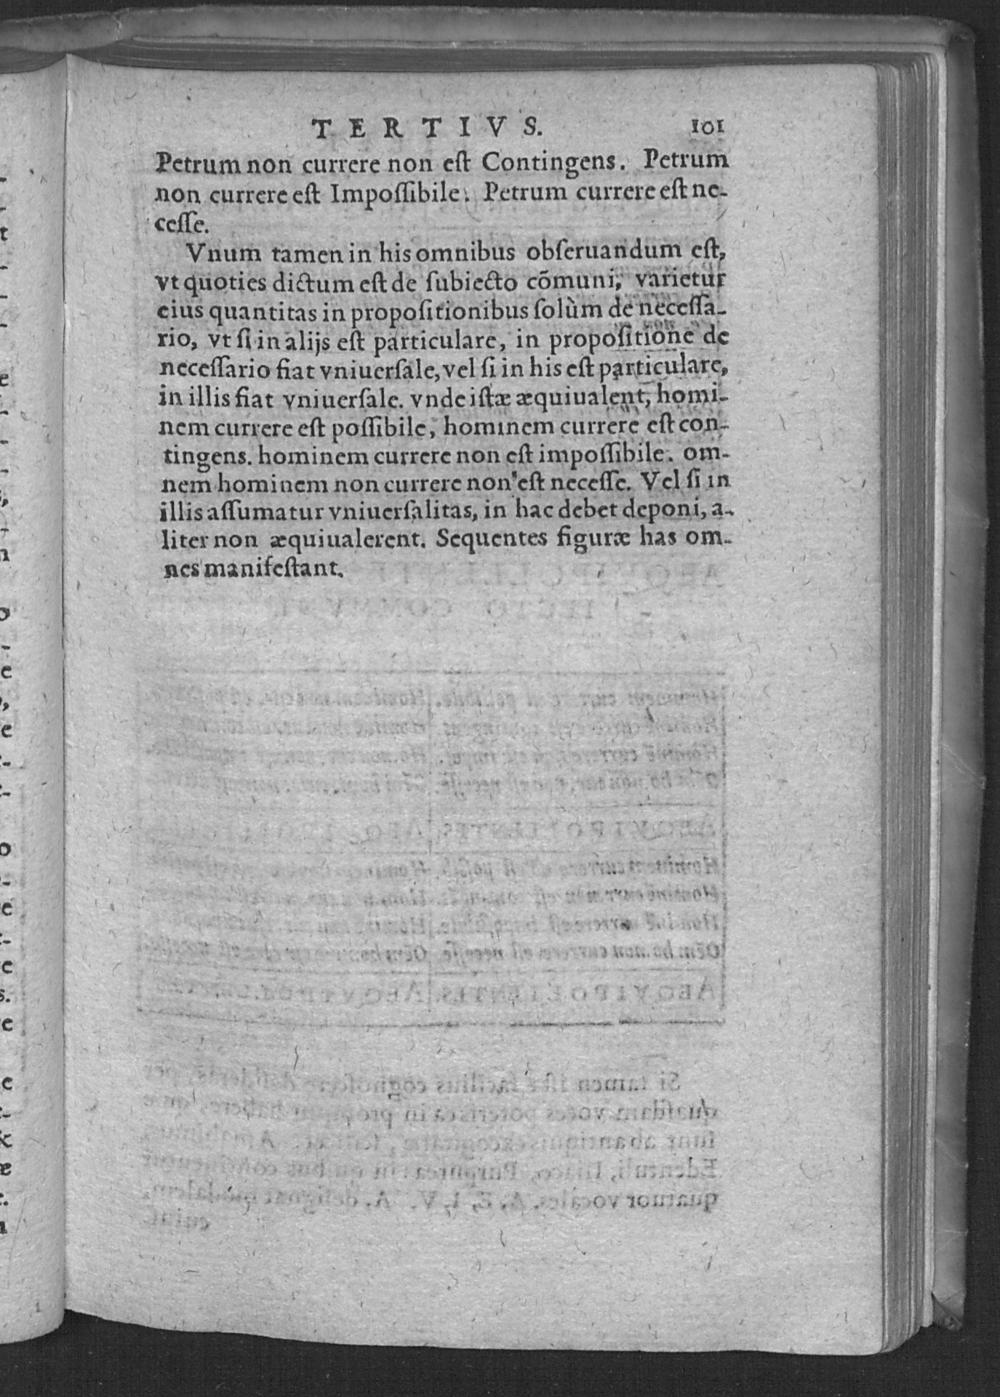 TERTIVS. 101
Petrum non currere non eſt Contingens. Petrum
non currere eſt Impoſſibile. Petrum currere eſt ne-
ceſſe.
Vnum tamen in his omnibus obſeruandum eſt,
vt quoties dictum eſt de ſubiecto cõmuni, varietur
eius quantitas in propoſitionibus ſolùm de neceſſa-
rio, vt ſi in alijs eſt particulare, in propoſitione de
neceſſario fiat vniuerſale, vel ſi in his eſt particulare,
in illis fiat vniuerſale. vnde iſtæ æquiualent, homi-
nem currere eſt poſſibile, hominem currere eſt con-
tingens. hominem currere non eſt impoſſibile. om-
nem hominem non currere non eſt neceſſe. Vel ſi in
illis aſſumatur vniuerſalitas, in hac debet deponi, a-
liter non æquiualerent. Sequentes figuræ has om-
nes manifeſtant.